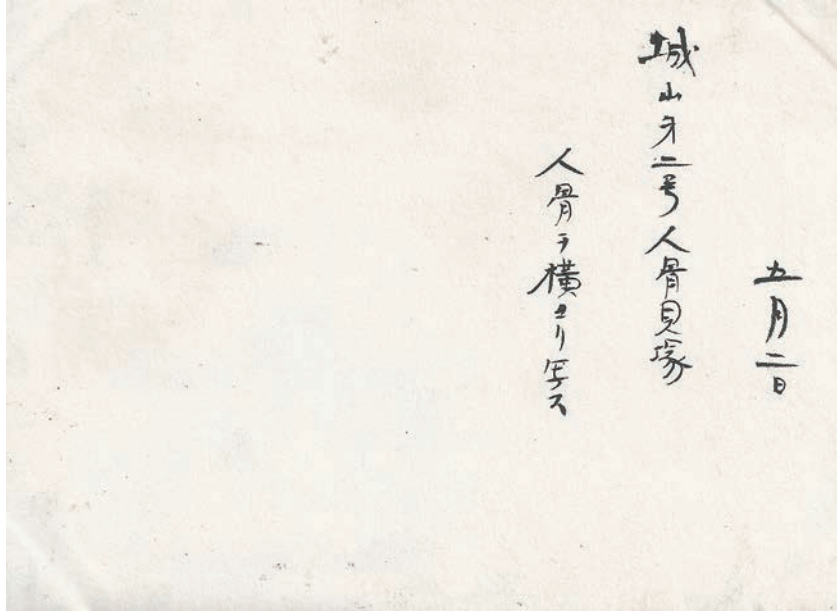 五月二日
城山才二号人骨貝塚
人骨ヲ横ヨリ写ス